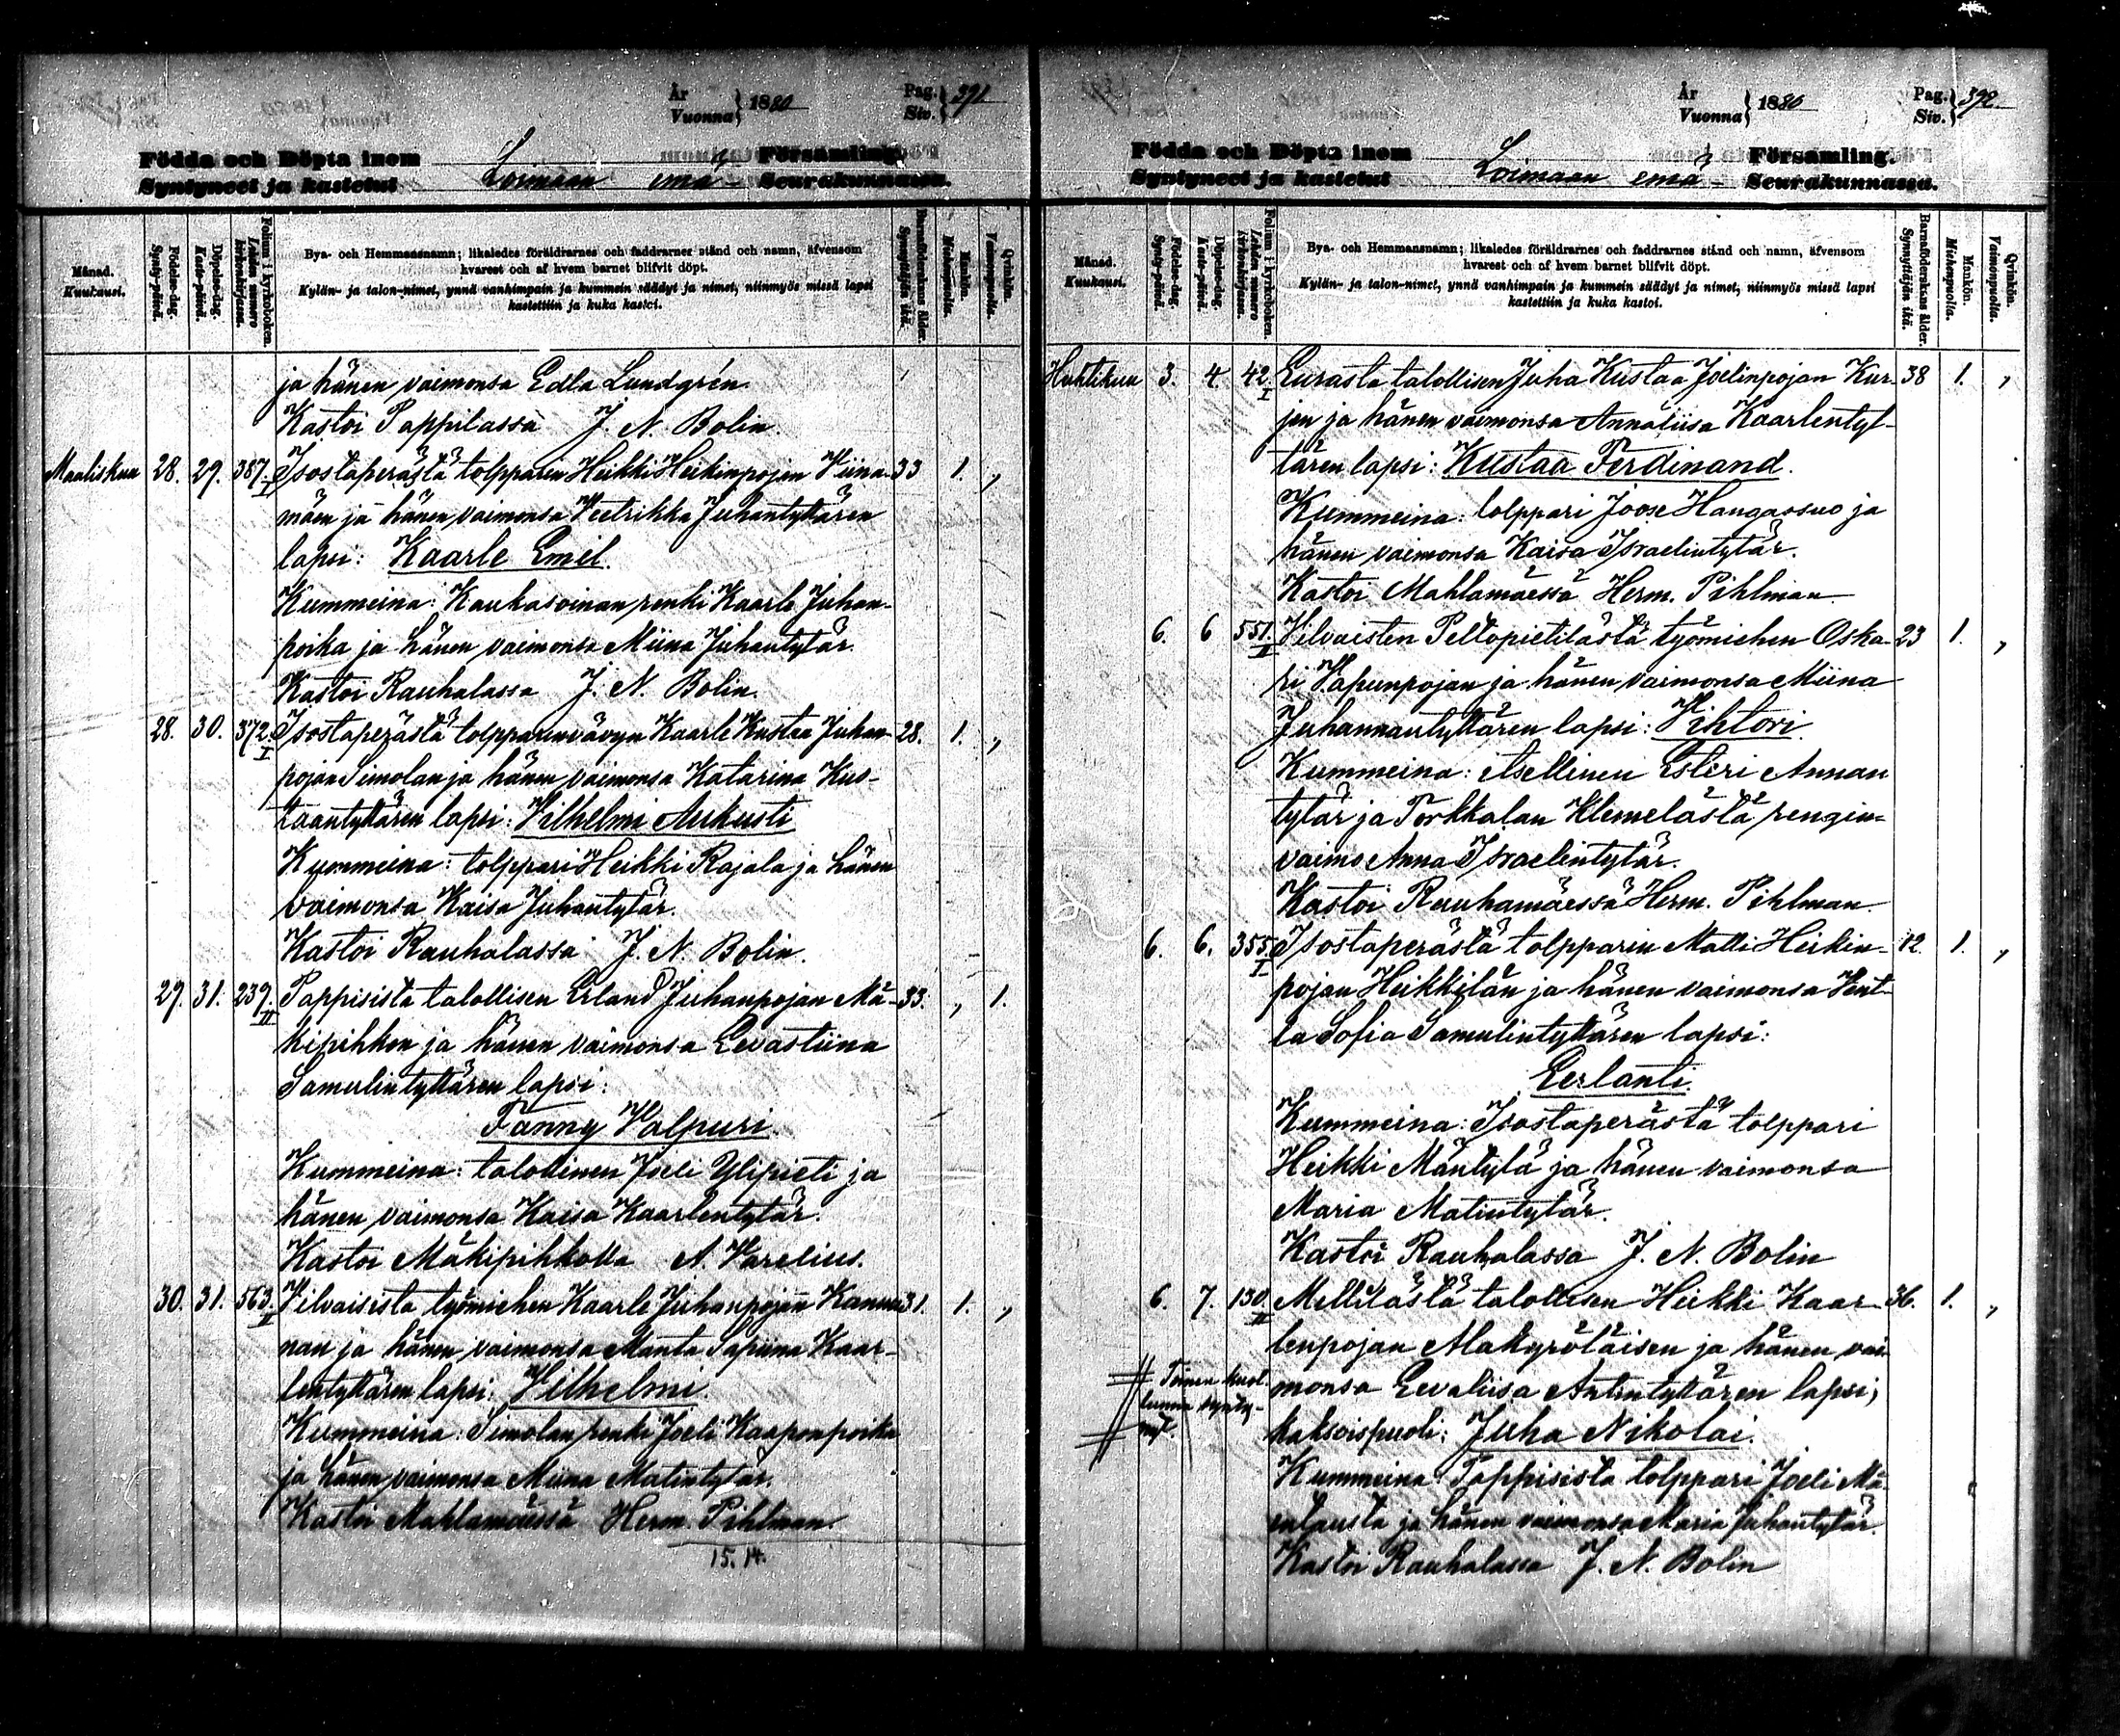 År
Vuonna } 1880
Pag.
Siv. } 391
Födda och Döpta inom Församling.
Syntyneet ja kastetut Loimaan emä- Seurakunnassa.
Månad.
Kuukausi.
Födelse-dag.
Synty-päivä.
Döpelse-dag.
Kaste-päivä.
Folium i kyrkoboken.
Lehden numero
kirkonkirjassa.
Bya- och Hemmansnamn; likaledes föräldrarnes och faddrarnes stånd och namn, äfvensom
hvarest och af hvem barnet blifvit döpt.
Kylän- ja talon-nimet, ynnä vanhimpain ja kummein säädyt ja nimet, niinmyös missä lapsi
kastettiin ja kuka kastoi.
Barnaföderskans ålder.
Synnyttäjän ikä.
Mankön.
Miehenpuolta.
Qvinkön.
Vaimonpuolta.
ja hänen vaimonsa Edla Lundgrén.
Kastoi Pappilassa J. N. Bolin.
Maaliskuu 28. 29. 387. I Isostaperästä tolpparin Heikki Heikinpojan Viina- 33 1. „
mäen ja hänen vaimonsa Veetrikka Juhantyttären
lapsi: Kaarle Emil.
Kummeina: Kauhasoinan renki Kaarle Juhan-
poika ja hänen vaimonsa Miina Juhantytär.
Kastoi Rauhalassa J. N. Bolin.
28. 30. 372. I Isostaperästä tolpparinvävyn Kaarle Kustaa Juhan- 28. 1. „
pojan Simolan ja hänen vaimonsa Katarina Kus-
taantyttären lapsi: Vilhelmi Aukusti
Kummeina: tolppari Heikki Rajala ja hänen
vaimonsa Kaisa Juhantytär.
Kastoi Rauhalassa J. N. Bolin.
29. 31. 239. II Pappisista talollisen Erland Juhanpojan Mä- 33. „ 1.
kipihkon ja hänen vaimonsa Eevastiina
Samulintyttären lapsi:
Fanny Valpuri.
Kummeina: talollinen Joeli Ylipieti ja
hänen vaimonsa Kaisa Kaarlentytär.
Kastoi Mäkipihkolla A. Varelius.
30. 31. 563. II Vilvaisista työmiehen Kaarle Juhanpojan Kanna- 31. 1. „
nan ja hänen vaimonsa Manta Sapiina Kaar-
lentyttären lapsi: Vilhelmi.
Kummeina: Simolan renki Joeli Kaaponpoika
ja hänen vaimonsa Miina Matintytär.
Kastoi Mahlamäessä Herm. Pihlman.
15. 14.
År
Vuonna } 1880
Pag.
Siv. } 392
Födda och Döpta inom Församling.
Syntyneet ja kastetut Loimaan emä- Seurakunnassa.
Månad.
Kuukausi.
Födelse-dag.
Synty-päivä.
Döpelse-dag.
Kaste-päivä.
Folium i kyrkoboken.
Lehden numero
kirkonkirjassa.
Bya- och Hemmansnamn; likaledes föräldrarnes och faddrarnes stånd och namn, äfvensom
hvarest och af hvem barnet blifvit döpt.
Kylän- ja talon-nimet, ynnä vanhimpain ja kummein säädyt ja nimet, niinmyös missä lapsi
kastettiin ja kuka kastoi.
Barnaföderskans ålder.
Synnyttäjän ikä.
Mankön.
Miehenpuolta.
Qvinkön.
Vaimonpuolta.
Huhtikuu 3. 4. 42. I Eurasta talollisen Juha Kustaa Joelinpojan Kur- 38 1. „
jen ja hänen vaimonsa Annaliisa Kaarlentyt-
tären lapsi: Kustaa Ferdinand.
Kummeina: tolppari Joose Hangassuo ja
hänen vaimonsa Kaisa Israelintytär.
Kastoi Mahlamäessä Herm. Pihlman.
6. 6 551. II Vilvaisten Peltopietilästä työmiehen Oska- 23 1. „
ri Vapunpojan ja hänen vaimonsa Miina
Juhannantyttären lapsi: Vihtori.
Kummeina: itsellinen Esteri Annan
tytär ja Torkkalan Klemelästä rengin-
vaimo Anna Israelintytär.
Kastoi Rauhamäessä Herm. Pihlman.
6. 6. 355. I Isostaperästä tolpparin Matti Heikin- 42. 1. „
pojan Heikkilän ja hänen vaimonsa Vent-
la Sofia Samulintyttären lapsi:
Eerlanti.
Kummeina: Isostaperästä tolppari
Heikki Mäntylä ja hänen vaimonsa
Maria Matintytär.
Kastoi Rauhalassa J. N. Bolin
6. 7. 130. II Mellilästä talollisen Heikki Kaar- 36. 1. „
lenpojan Alakyröläisen ja hänen vai-
monsa Eevaliisa Antintyttären lapsi;
# Toinen kuol-
lunna synty-
nyt. #
kaksoispuoli: Juha Nikolai.
Kummeina: Pappisista tolppari Joeli Mä
ja hänen vaimonsa Maria Juhantytär.
Kastoi Rauhalassa J. N. Bolin